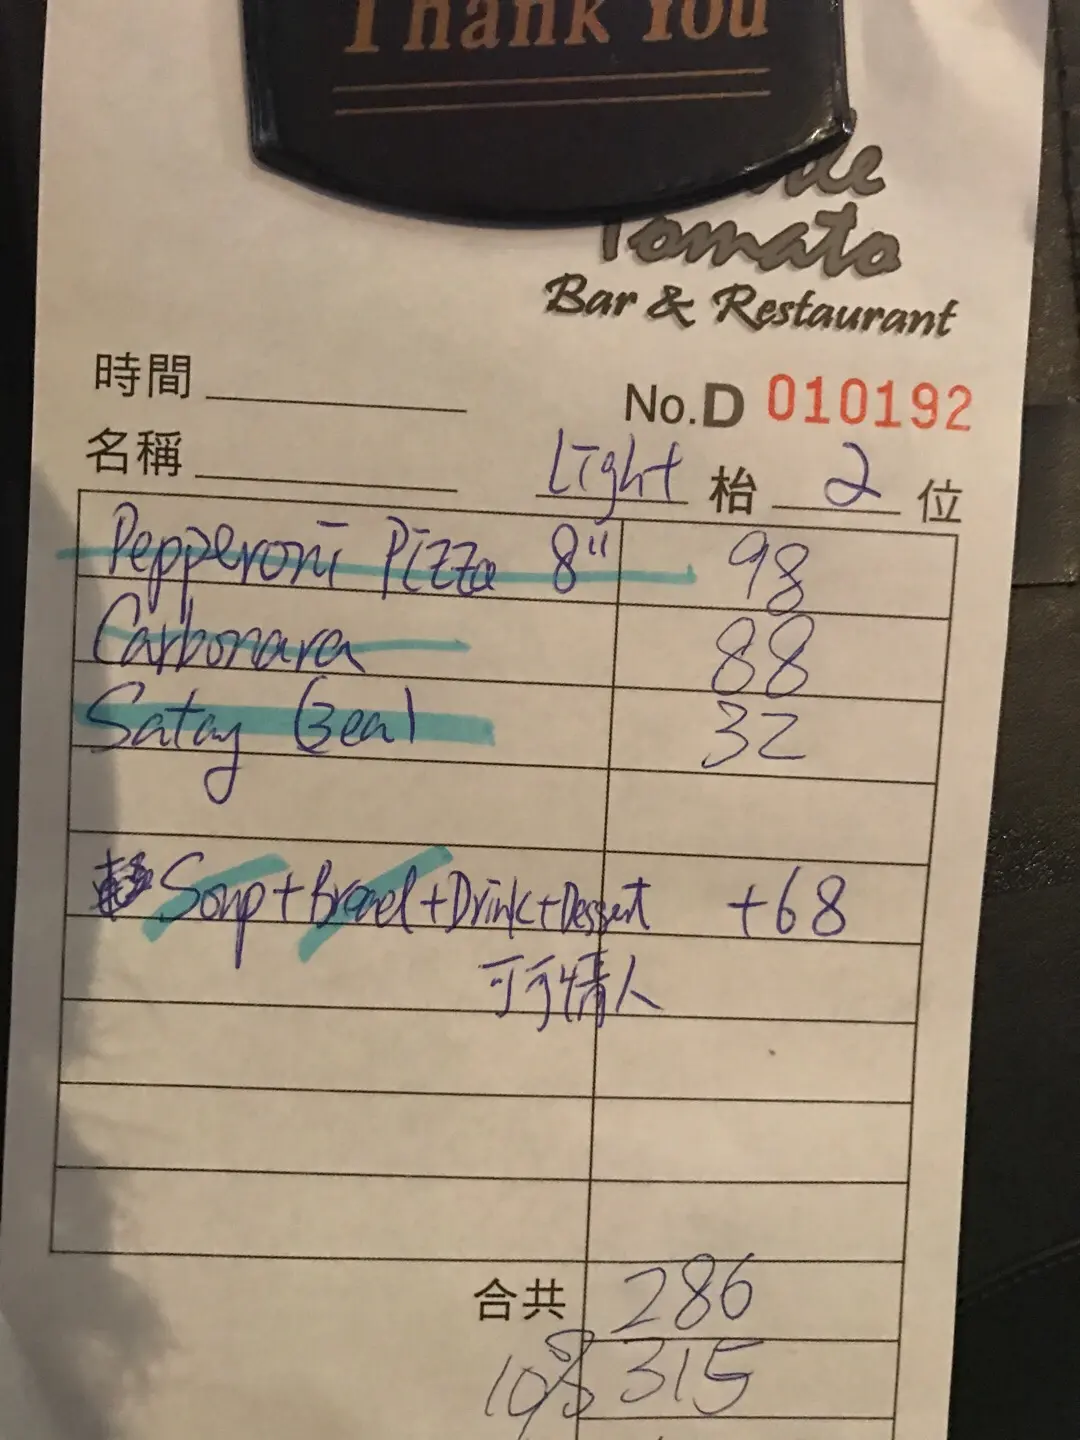 Thank You
Tomato
Bar & Restaurant
時間
No.D 010192
名稱
Light 枱 2 位
Pepperoni Pizza 8" 98
Carbonara 88
Satay (3ea) 32
Soup+Bread+Drink+Dessert +68
可可情人
合共 286
10% 315